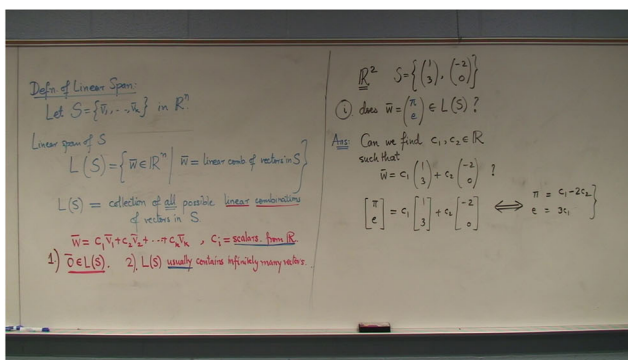 Defn. of Linear Span:
Let S = {v̄₁, . . , v̄ₖ} in ℝⁿ.
Linear span of S
L(S) = { w̄ ∈ ℝⁿ | w̄ = linear comb of vectors in S }
L(S) = collection of all possible linear combinations
of vectors in S.
w̄ = c₁v̄₁ + c₂v̄₂ + ··· + cₖv̄ₖ , cᵢ = scalars from ℝ.
1) 0̄ ∈ L(S). 2) L(S) usually contains infinitely many vectors.
ℝ² S = { (1 3), (-2 0) }
(i) does w̄ = (π e) ∈ L(S) ?
Ans: Can we find c₁, c₂ ∈ ℝ
such that
w̄ = c₁ (1 3) + c₂ (-2 0) ?
[π e] = c₁ [1 3] + c₂ [-2 0] ⟺ π = c₁ - 2c₂
e = 3c₁ }